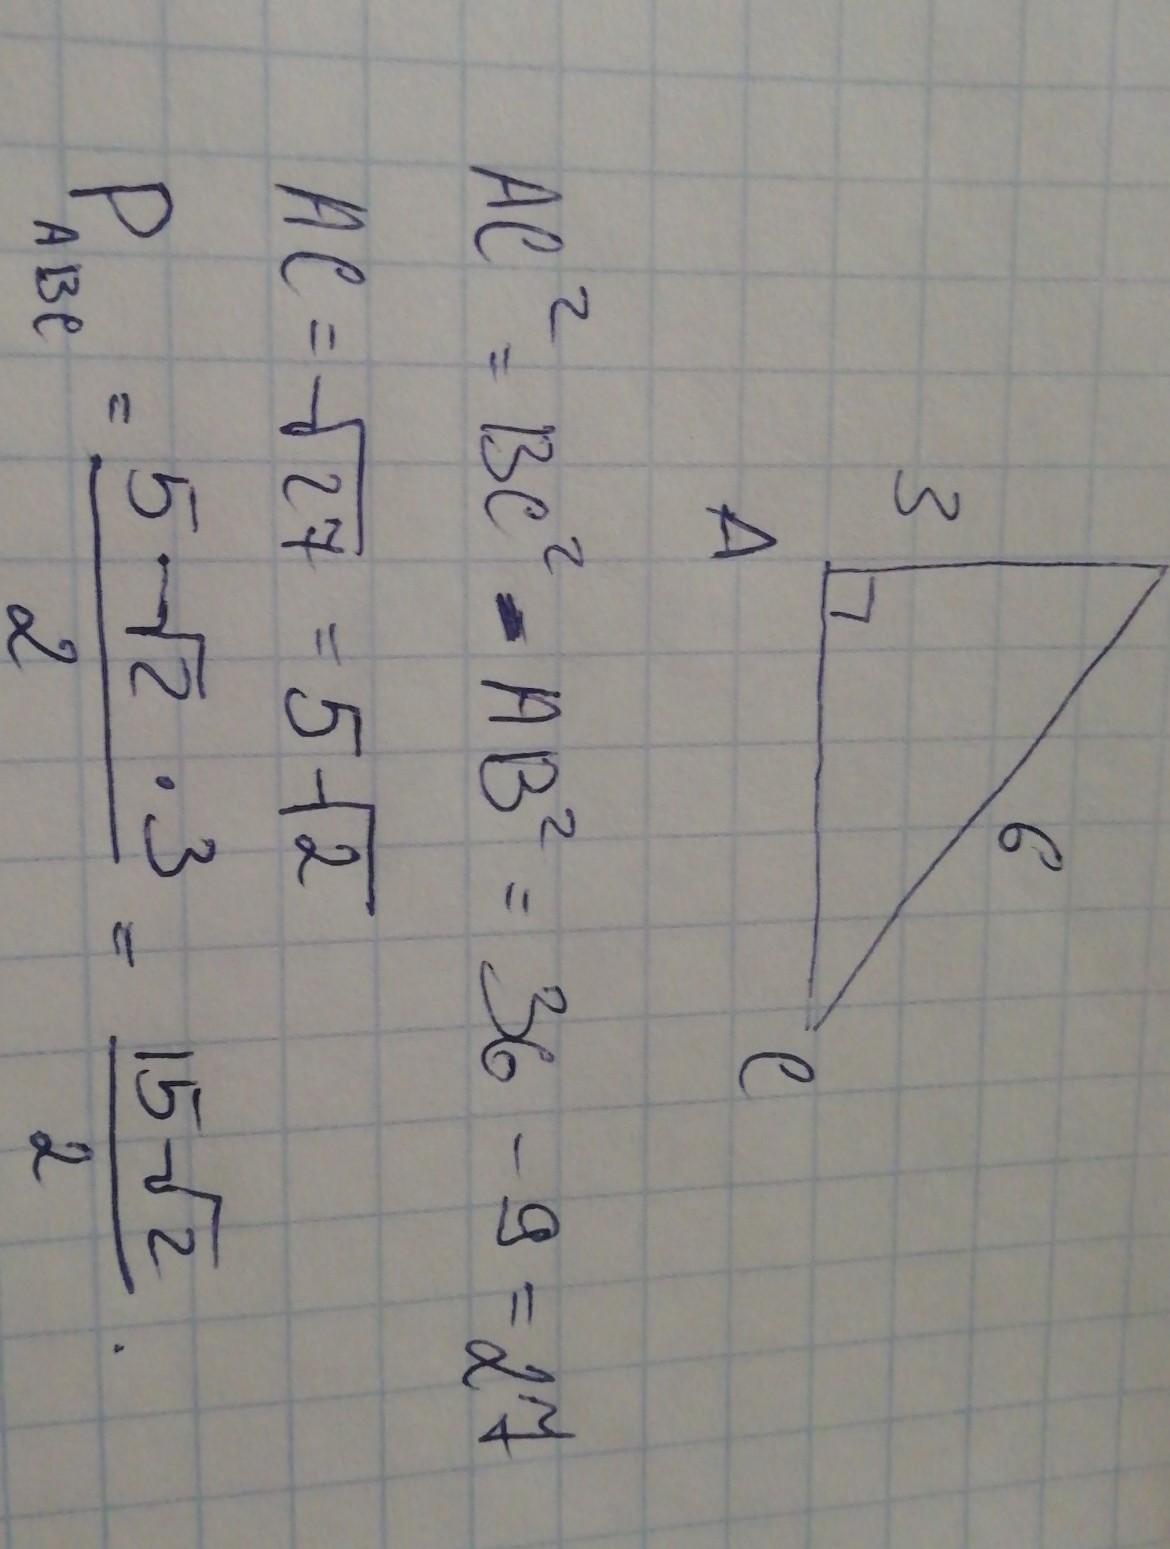 3
6
A
C
AC² = BC² - AB² = 36 - 9 = 27
AC = √27 = 5√2
P_ABC = (5·√2·3)/2 = (15√2)/2.